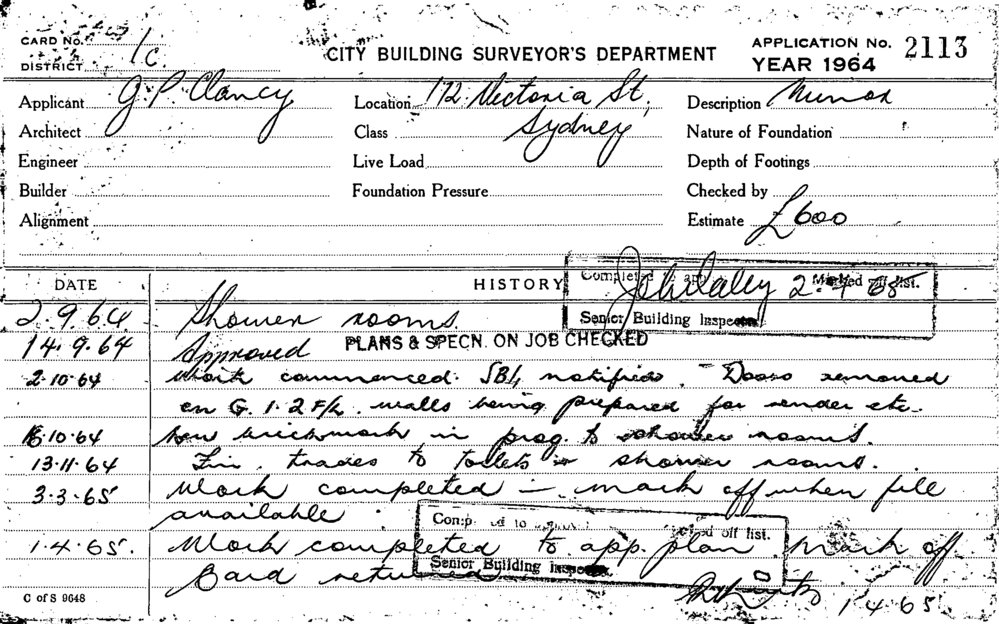 CARD No.
DISTRICT 1C.
CITY BUILDING SURVEYOR'S DEPARTMENT
APPLICATION No. 2113
YEAR 1964
Applicant G. P. Clancy
Location 172 Victoria St,
Sydney
Description Minor
Architect
Class
Nature of Foundation
Engineer
Live Load
Depth of Footings
Builder
Foundation Pressure
Checked by
Alignment
Estimate £600
DATE
HISTORY
Marked off list.
Senior Building Inspector
2.9.64 Shower rooms.
14.9.64 Approved PLANS & SPECN. ON JOB CHECKED
2.10.64 Work commenced. SBI, notified. Doors removed
on G. 1. 2 F/L. walls being prepared for render etc.
16.10.64 brickwork in prog. to shower rooms.
13.11.64 Fin. trades to toilets shower rooms.
3.3.65 Work completed — mark off when file
available.
off list.
Senior Building Inspector
1.4.65. Work completed to app. plan. Mark off
Card returned
1.4.65
C of S 9648